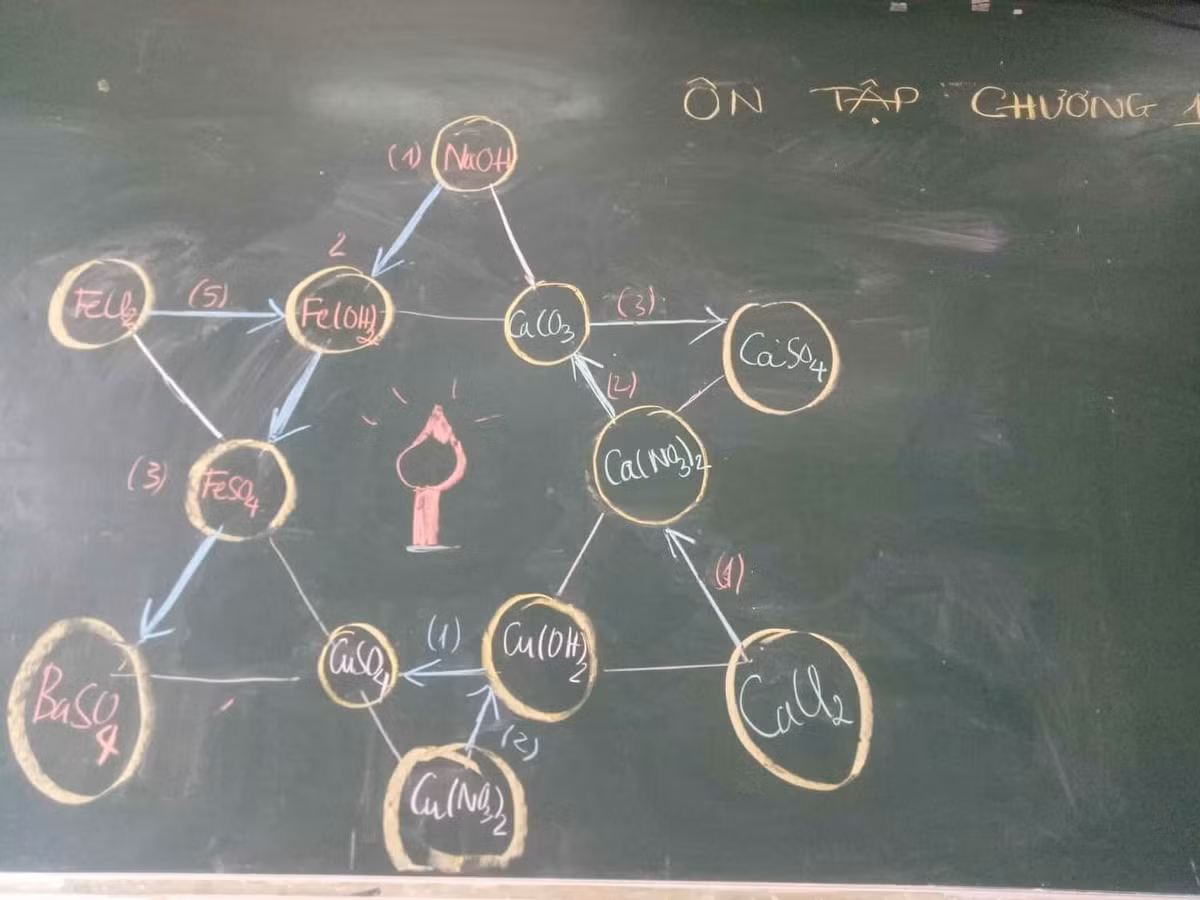 ÔN TẬP CHƯƠNG 1
(1) NaOH
2
FeCl₂ (5) Fe(OH)₂ CaCO₃ (3) CaSO₄
(2)
Ca(NO₃)₂
(3) FeSO₄
(1)
BaSO₄ CuSO₄ (1) Cu(OH)₂ CaCl₂
(2)
Cu(NO₃)₂